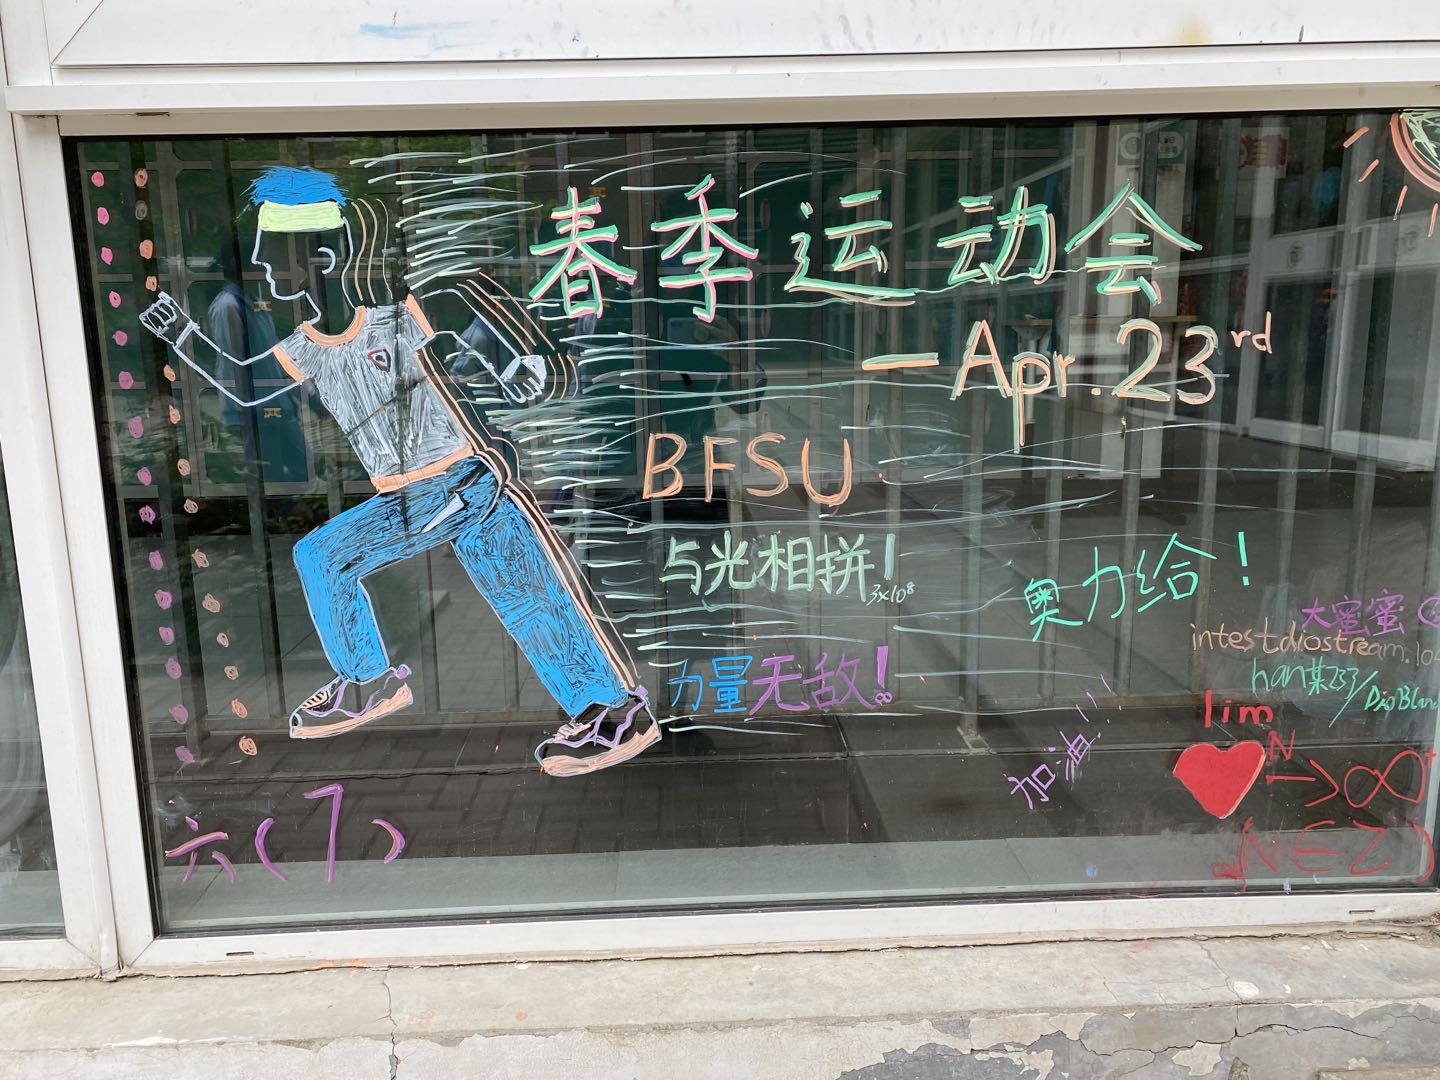 春季运动会
—Apr.23rd
BFSU
与光相拼!
3×10⁸
奥力给!
大蜜蜜
intestdiostream.
力量无敌!!
han某233/
lim
加油!!
N→∞
六(7)
NEZ)